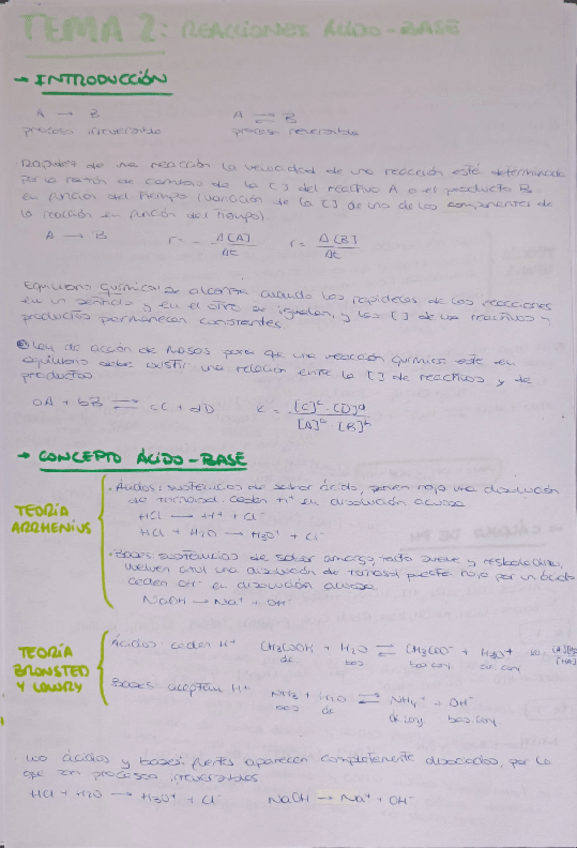 TEMA 2: REACCIONES ÁCIDO-BASE
→ INTRODUCCIÓN
A → B    A ⇌ B
proceso irreversible    proceso reversible
· Rapidez de una reacción la velocidad de una reacción está determinada
por la razón de cambio de la [ ] del reactivo A o el producto B
en función del tiempo (variación de la [ ] de uno de los componentes de
la reacción en función del tiempo).
A → B    r = - Δ[A]/Δt    r = Δ[B]/Δt
· Equilibrio químico: se alcanza cuando las rapideces de las reacciones
en un sentido y en el otro se igualan, y las [ ] de los reactivos y
productos permanecen constantes.
Ley de acción de masas para que una reacción química esté en
equilibrio debe existir una relación entre la [ ] de reactivos y de
productos.
aA + bB ⇌ cC + dD    K = [C]ᶜ · [D]ᵈ / [A]ᵃ [B]ᵇ
→ CONCEPTO ÁCIDO-BASE
TEORÍA
ARRHENIUS
· Ácidos: sustancias de sabor ácido, ponen roja una disolución
de tornasol. Ceden H⁺ en disolución acuosa
HCl → H⁺ + Cl⁻
HCl + H₂O → H₃O⁺ + Cl⁻
· Bases sustancias de sabor amargo, tacto suave y resbaladizo,
vuelven azul una disolución de tornasol puesta en rojo por un ácido
ceden OH⁻ en disolución acuosa
NaOH → Na⁺ + OH⁻
TEORÍA
BRONSTED
Y LOWRY
Ácidos ceden H⁺    CH₃COOH + H₂O ⇌ CH₃COO⁻ + H₃O⁺
ác    bas    bas. conj    ác. conj
Bases aceptan H⁺    NH₃ + H₂O ⇌ NH₄⁺ + OH⁻
bas    ác    ác. conj    bas. conj
· Los ácidos y bases fuertes aparecen completamente disociados, por lo
que son procesos irreversibles
HCl + H₂O → H₃O⁺ + Cl⁻    NaOH → Na⁺ + OH⁻